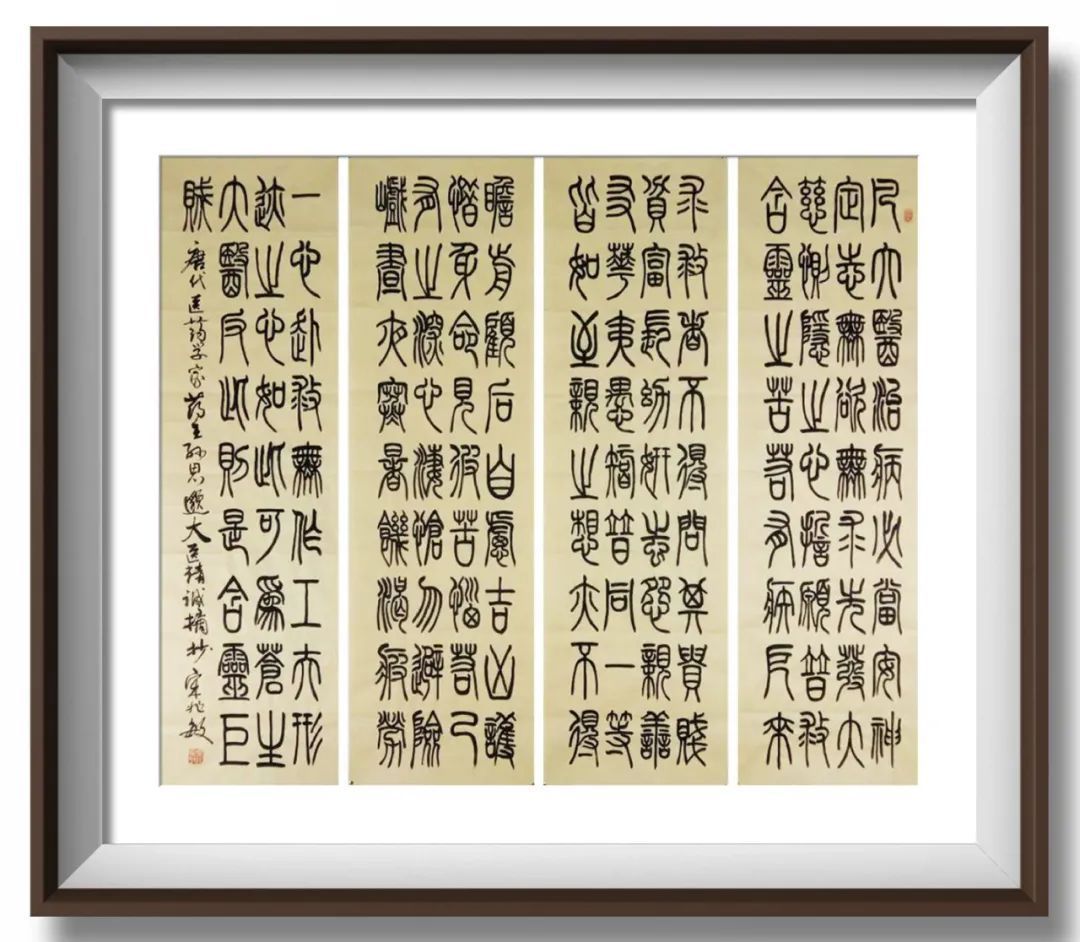 凡大醫治病必當安神
定志無欲無求先發大
慈惻隱之心誓願普救
含靈之苦若有疾厄來
求救者不得問其貴賤
貧富長幼妍蚩怨親善
友華夷愚智普同一等
皆如至親之想亦不得
瞻前顧后自慮吉凶護
惜身命見彼苦惱若己
有之深心淒愴勿避險
巇晝夜寒暑饑渴疲勞
一心赴救無作工夫形
迹之心如此可爲蒼生
大醫反此則是含靈巨
賊
唐代医药学家药王孙思邈大医精诚摘抄